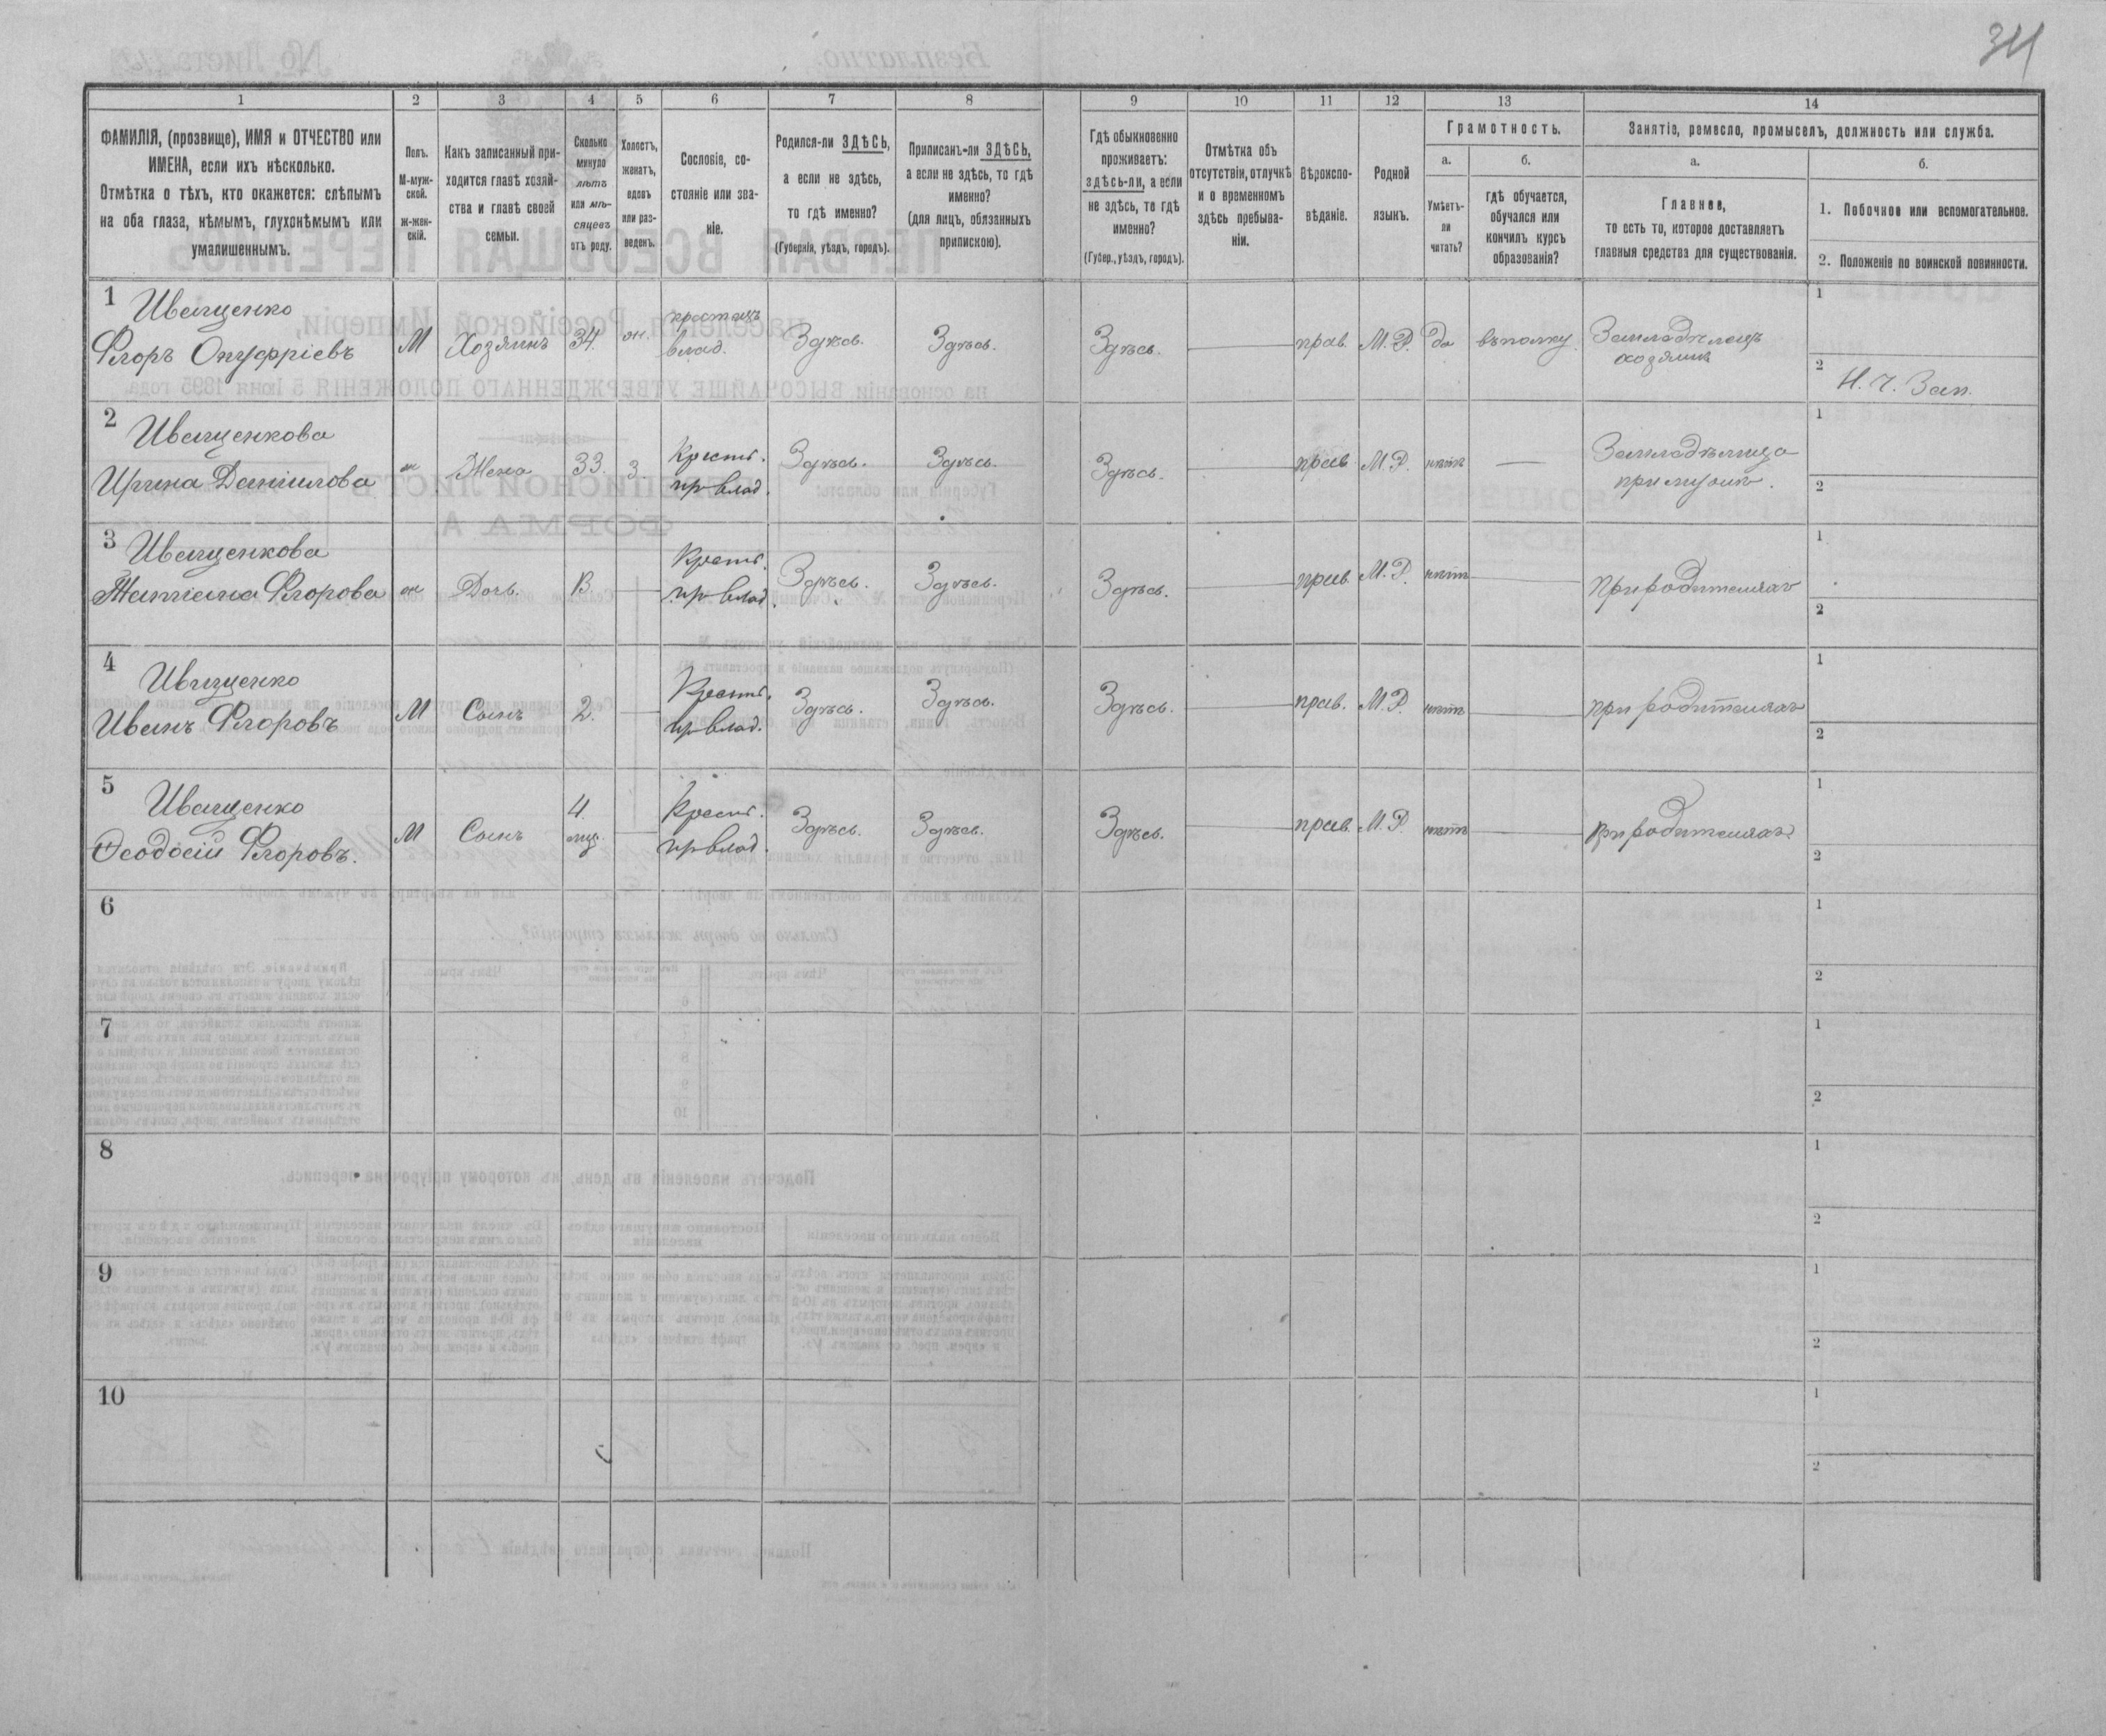 34
1
2
3
4
5
6
7
8
9
10
11
12
13
14
ФАМИЛІЯ, (прозвище), ИМЯ и ОТЧЕСТВО или
ИМЕНА, если ихъ нѣсколько.
Отмѣтка о тѣхъ, кто окажется: слѣпымъ
на оба глаза, нѣмымъ, глухонѣмымъ или
умалишеннымъ.
Полъ.
М-муж-
ской.
Ж-жен-
скій.
Какъ записанный при-
ходится главѣ хозяй-
ства и главѣ своей
семьи.
Сколько
минуло
лѣтъ
или мѣ-
сяцевъ
отъ роду.
Холостъ,
женатъ,
вдовъ
или раз-
веденъ.
Сословіе, со-
стояніе или зва-
ніе.
Родился-ли ЗДѢСЬ,
а если не здѣсь,
то гдѣ именно?
(Губернія, уѣздъ, городъ).
Приписанъ-ли ЗДѢСЬ,
а если не здѣсь, то гдѣ
именно?
(для лицъ, обязанныхъ
припискою).
Гдѣ обыкновенно
проживаетъ:
здѣсь-ли, а если
не здѣсь, то гдѣ
именно?
(Губер., уѣздъ, городъ).
Отмѣтка объ
отсутствіи, отлучкѣ
и о временномъ
здѣсь пребыва-
ніи.
Вѣроиспо-
вѣданіе.
Родной
языкъ.
Грамотность.
а.
Умѣетъ-
ли
читать?
б.
гдѣ обучается,
обучался или
кончилъ курсъ
образованія?
Занятіе, ремесло, промыселъ, должность или служба.
а.
Главное,
то есть то, которое доставляетъ
главныя средства для существованія.
б.
1. Побочное или вспомогательное.
2. Положеніе по воинской повинности.
1 Иващенко
Флоръ Онуфріевъ
М
Хозяинъ
34.
ж.
крестьян
влад.
Здѣсь.
Здѣсь.
Здѣсь.
прав.
М. Р.
да
въ полку
Земледѣлецъ
хозяинъ
1
2
Н. Ч. Зап.
2 Иващенкова
Ирина Данилова
ж
Жена
33.
З.
Крестъ.
пр влад.
Здѣсь.
Здѣсь.
Здѣсь.
прав
М. Р.
нѣтъ
Земледѣлица
при мужѣ.
1
2
3 Иващенкова
Татіана Флорова
ж
Дочь.
Крестъ.
пр влад.
Здѣсь.
Здѣсь.
Здѣсь.
прав
М. Р.
нѣтъ
При родителяхъ
1
2
4 Иващенко
Иванъ Флоровъ
М
Сынъ
2.
Крестъ.
пр влад.
Здѣсь.
Здѣсь.
Здѣсь.
прав.
М. Р.
нѣтъ
при родителяхъ
1
2
5 Иващенко
Ѳеодосій Флоровъ.
М
Сынъ
4.
мц.
Крестъ.
пр влад.
Здѣсь.
Здѣсь.
Здѣсь.
прав.
М. Р.
нѣтъ
при родителяхъ
1
2
6
1
2
7
1
2
8
1
2
9
1
2
10
1
2